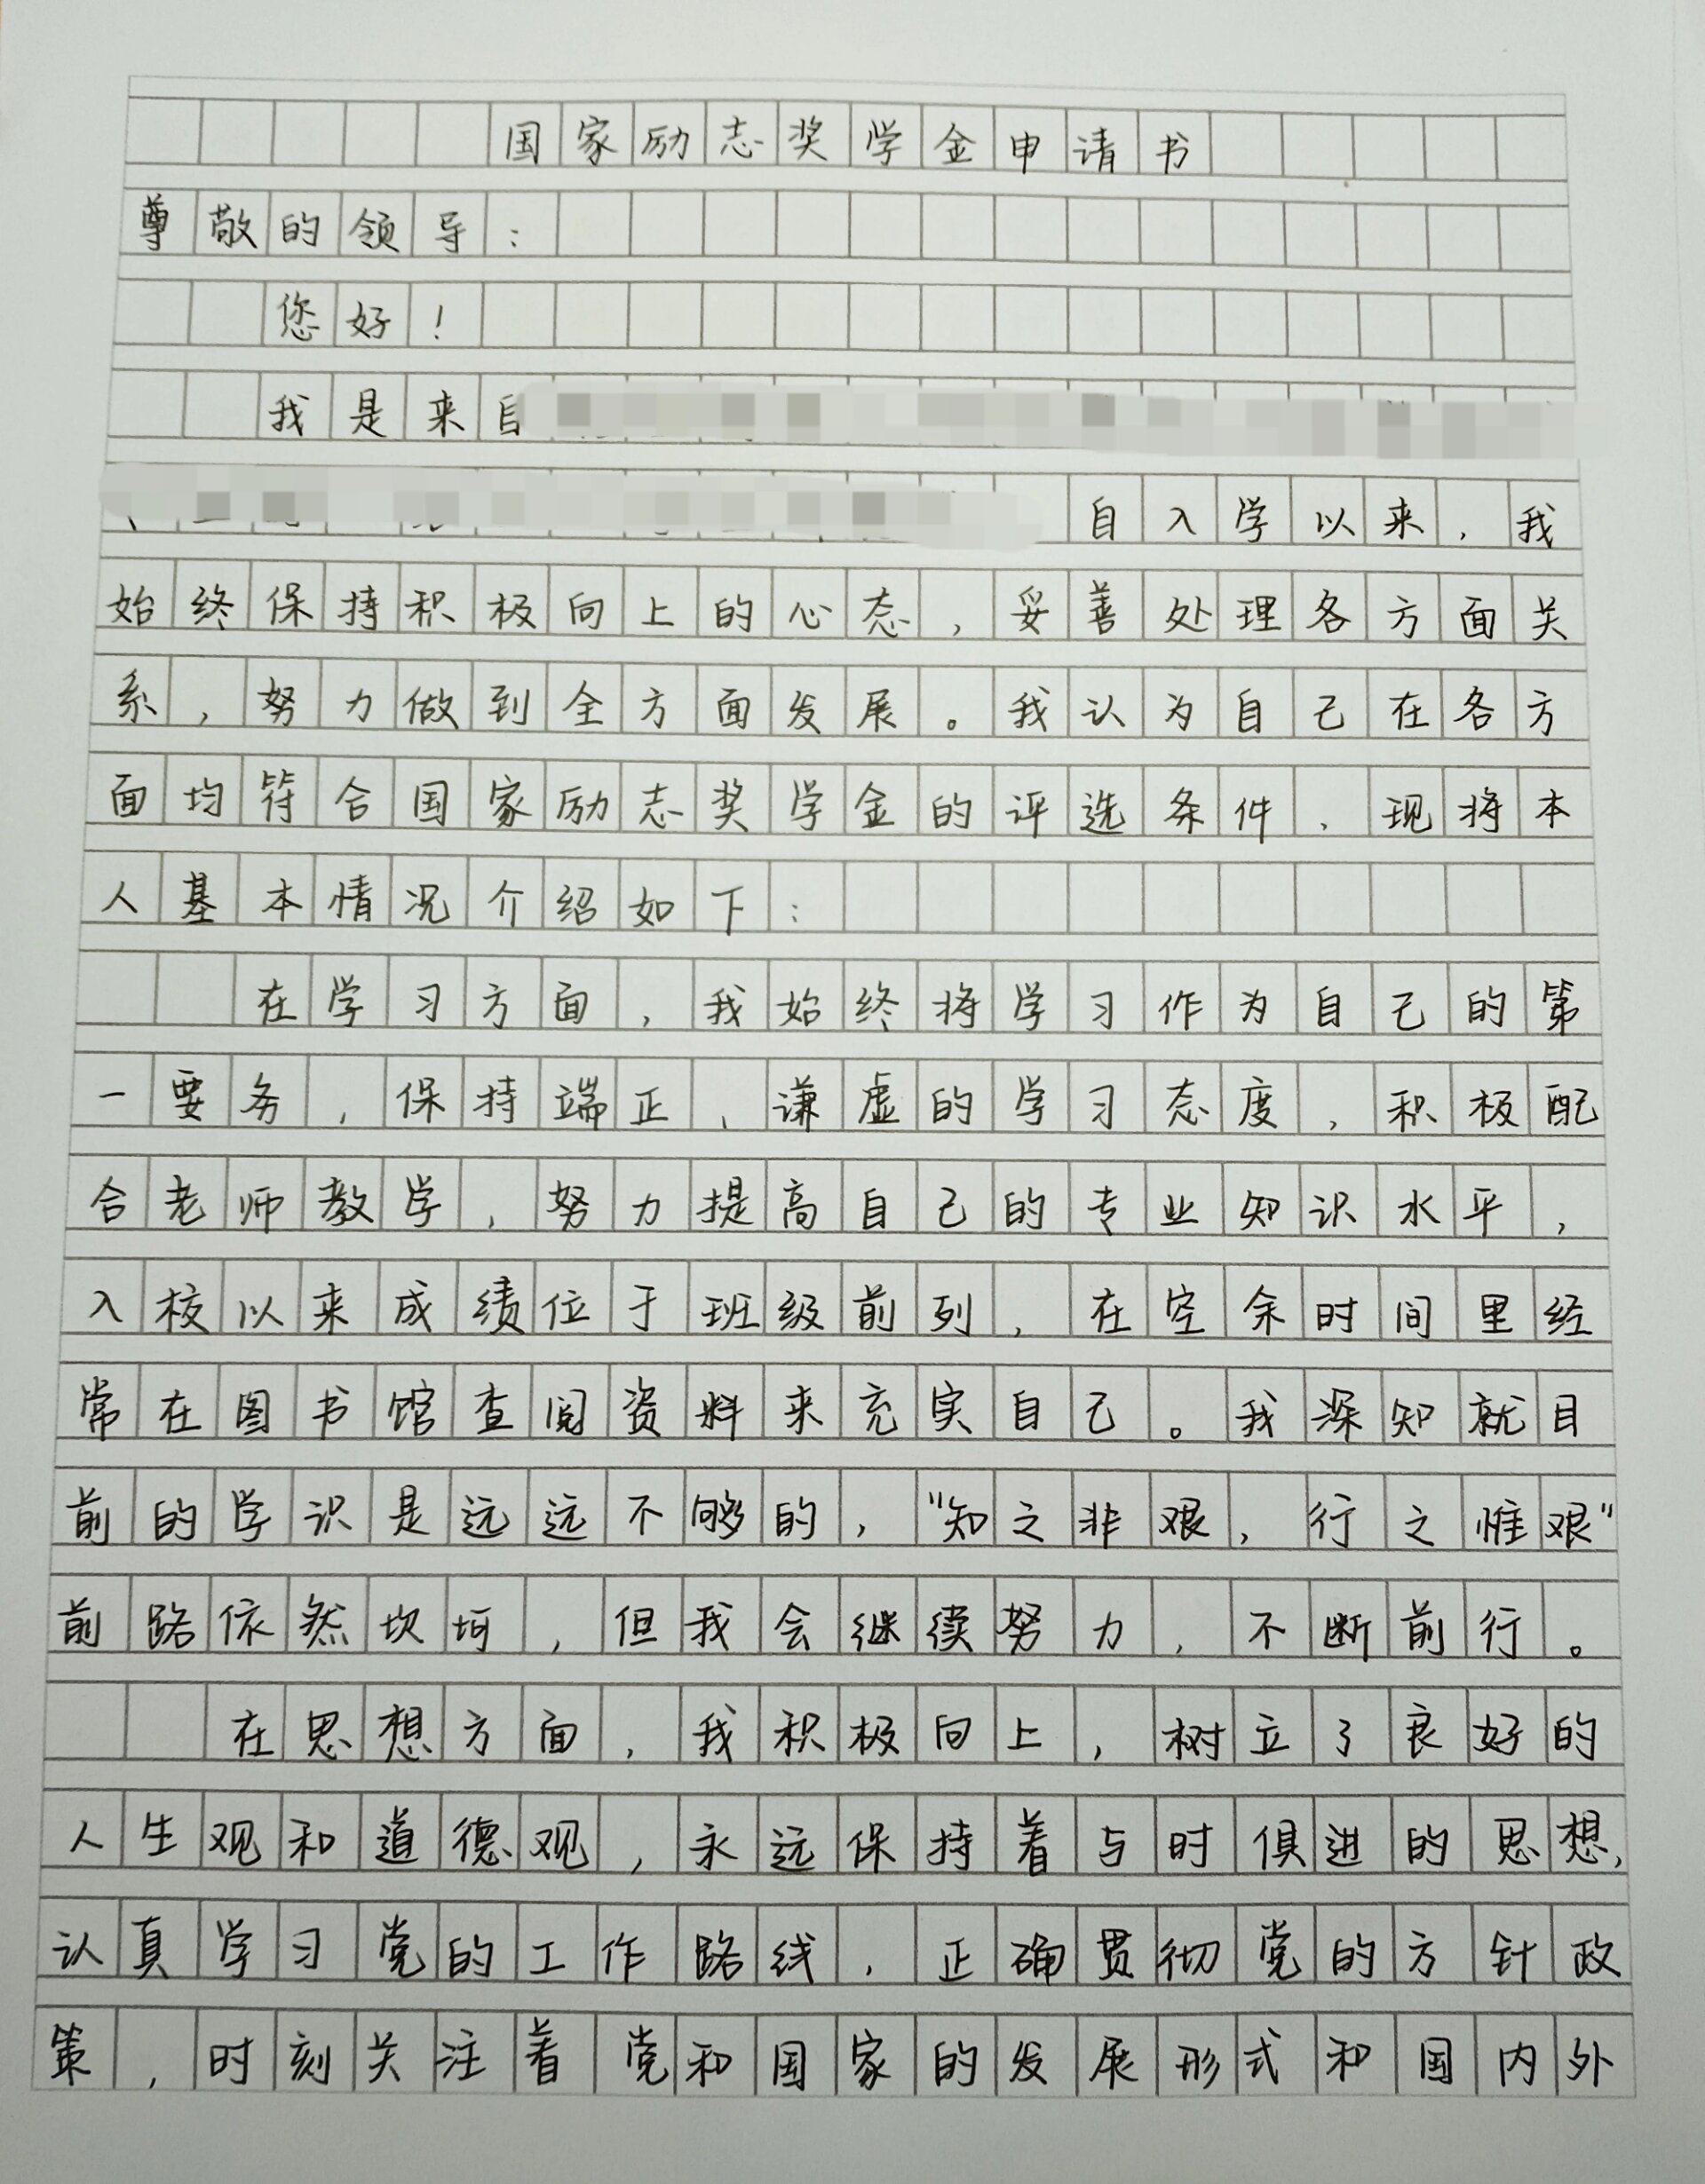 国家励志奖学金申请书
尊敬的领导：
您好！
我是来自
自入学以来，我
始终保持积极向上的心态，妥善处理各方面关
系，努力做到全方面发展。我认为自己在各方
面均符合国家励志奖学金的评选条件，现将本
人基本情况介绍如下：
在学习方面，我始终将学习作为自己的第
一要务，保持端正、谦虚的学习态度，积极配
合老师教学，努力提高自己的专业知识水平，
入校以来成绩位于班级前列，在空余时间里经
常在图书馆查阅资料来充实自己。我深知就目
前的学识是远远不够的，“知之非艰，行之惟艰”
前路依然坎坷，但我会继续努力，不断前行。
在思想方面，我积极向上，树立了良好的
人生观和道德观，永远保持着与时俱进的思想，
认真学习党的工作路线，正确贯彻党的方针政
策，时刻关注着党和国家的发展形式和国内外